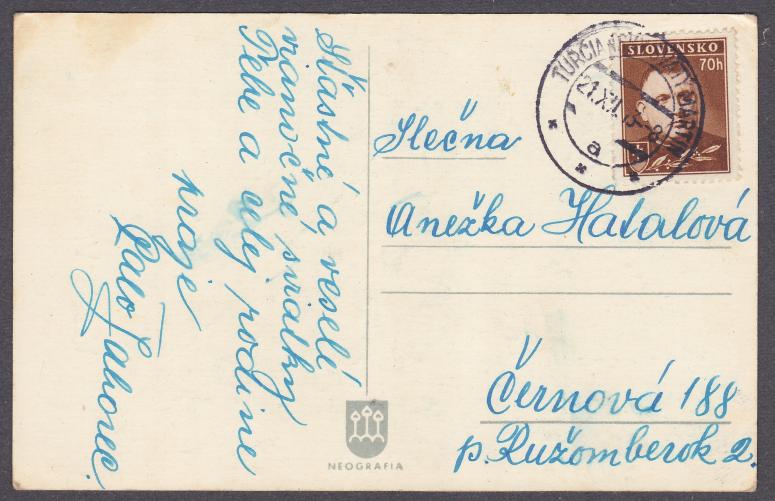 Šťastné a veselé
vianočné sviatky
Tebe a celej rodine
praje
Palo Záhorec.
SLOVENSKO
70h
TURČIANSKY SVÄTÝ MARTIN
21.XII.
a
Slečna
Anežka Hatalová
Černová 188
p. Ružomberok 2.
NEOGRAFIA